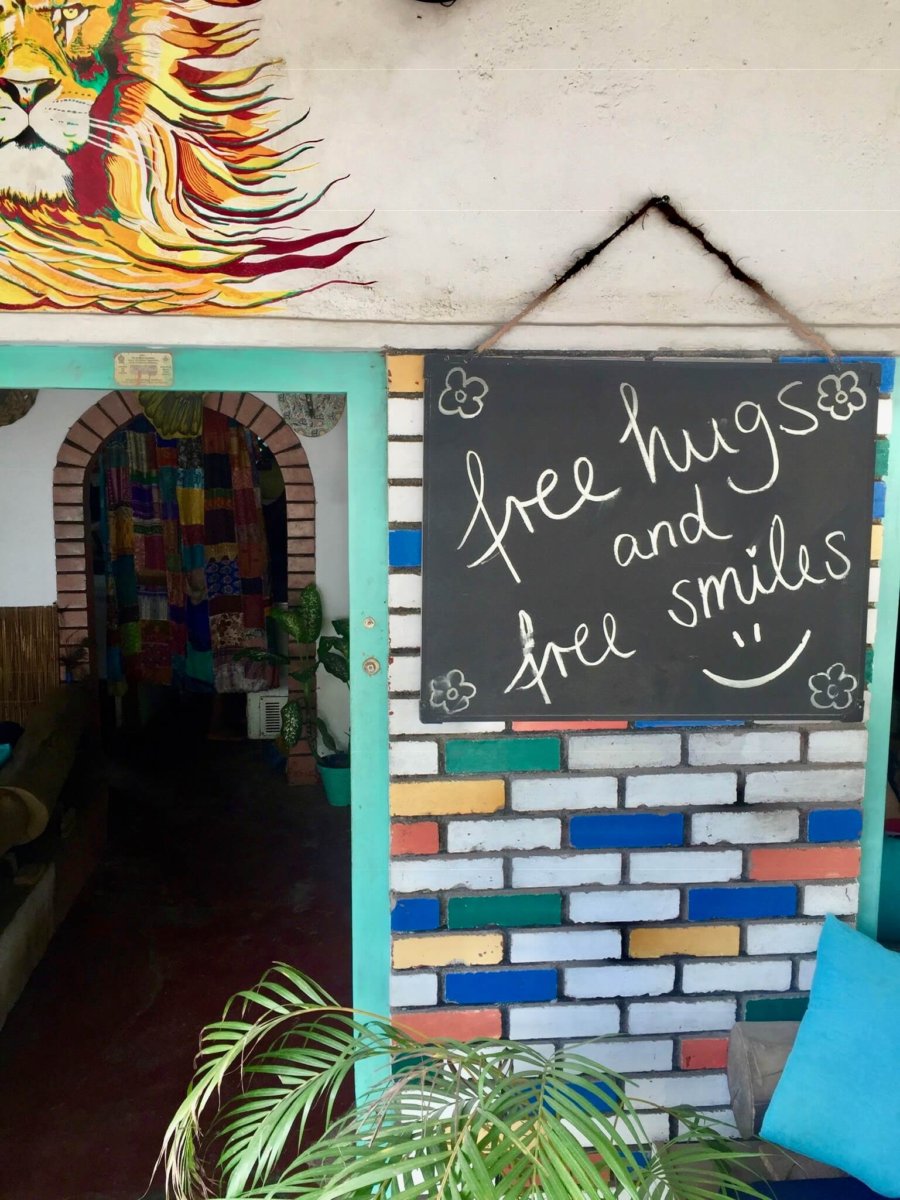 free hugs
and
free smiles